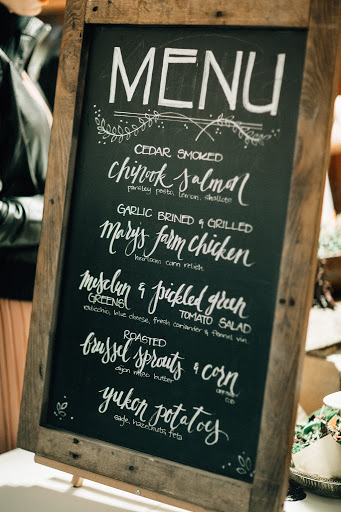 MENU
CEDAR SMOKED
chinook salmon
parsley pesto, lemon, shallots
GARLIC BRINED & GRILLED
Marys farm chicken
heirloom corn relish
mesclun & pickled green
GREENS TOMATO SALAD
radicchio, blue cheese, fresh coriander & fennel vin.
ROASTED
brussel sprouts & corn
dijon miso butter on the cob
yukon potatoes
sage, hazelnuts, feta